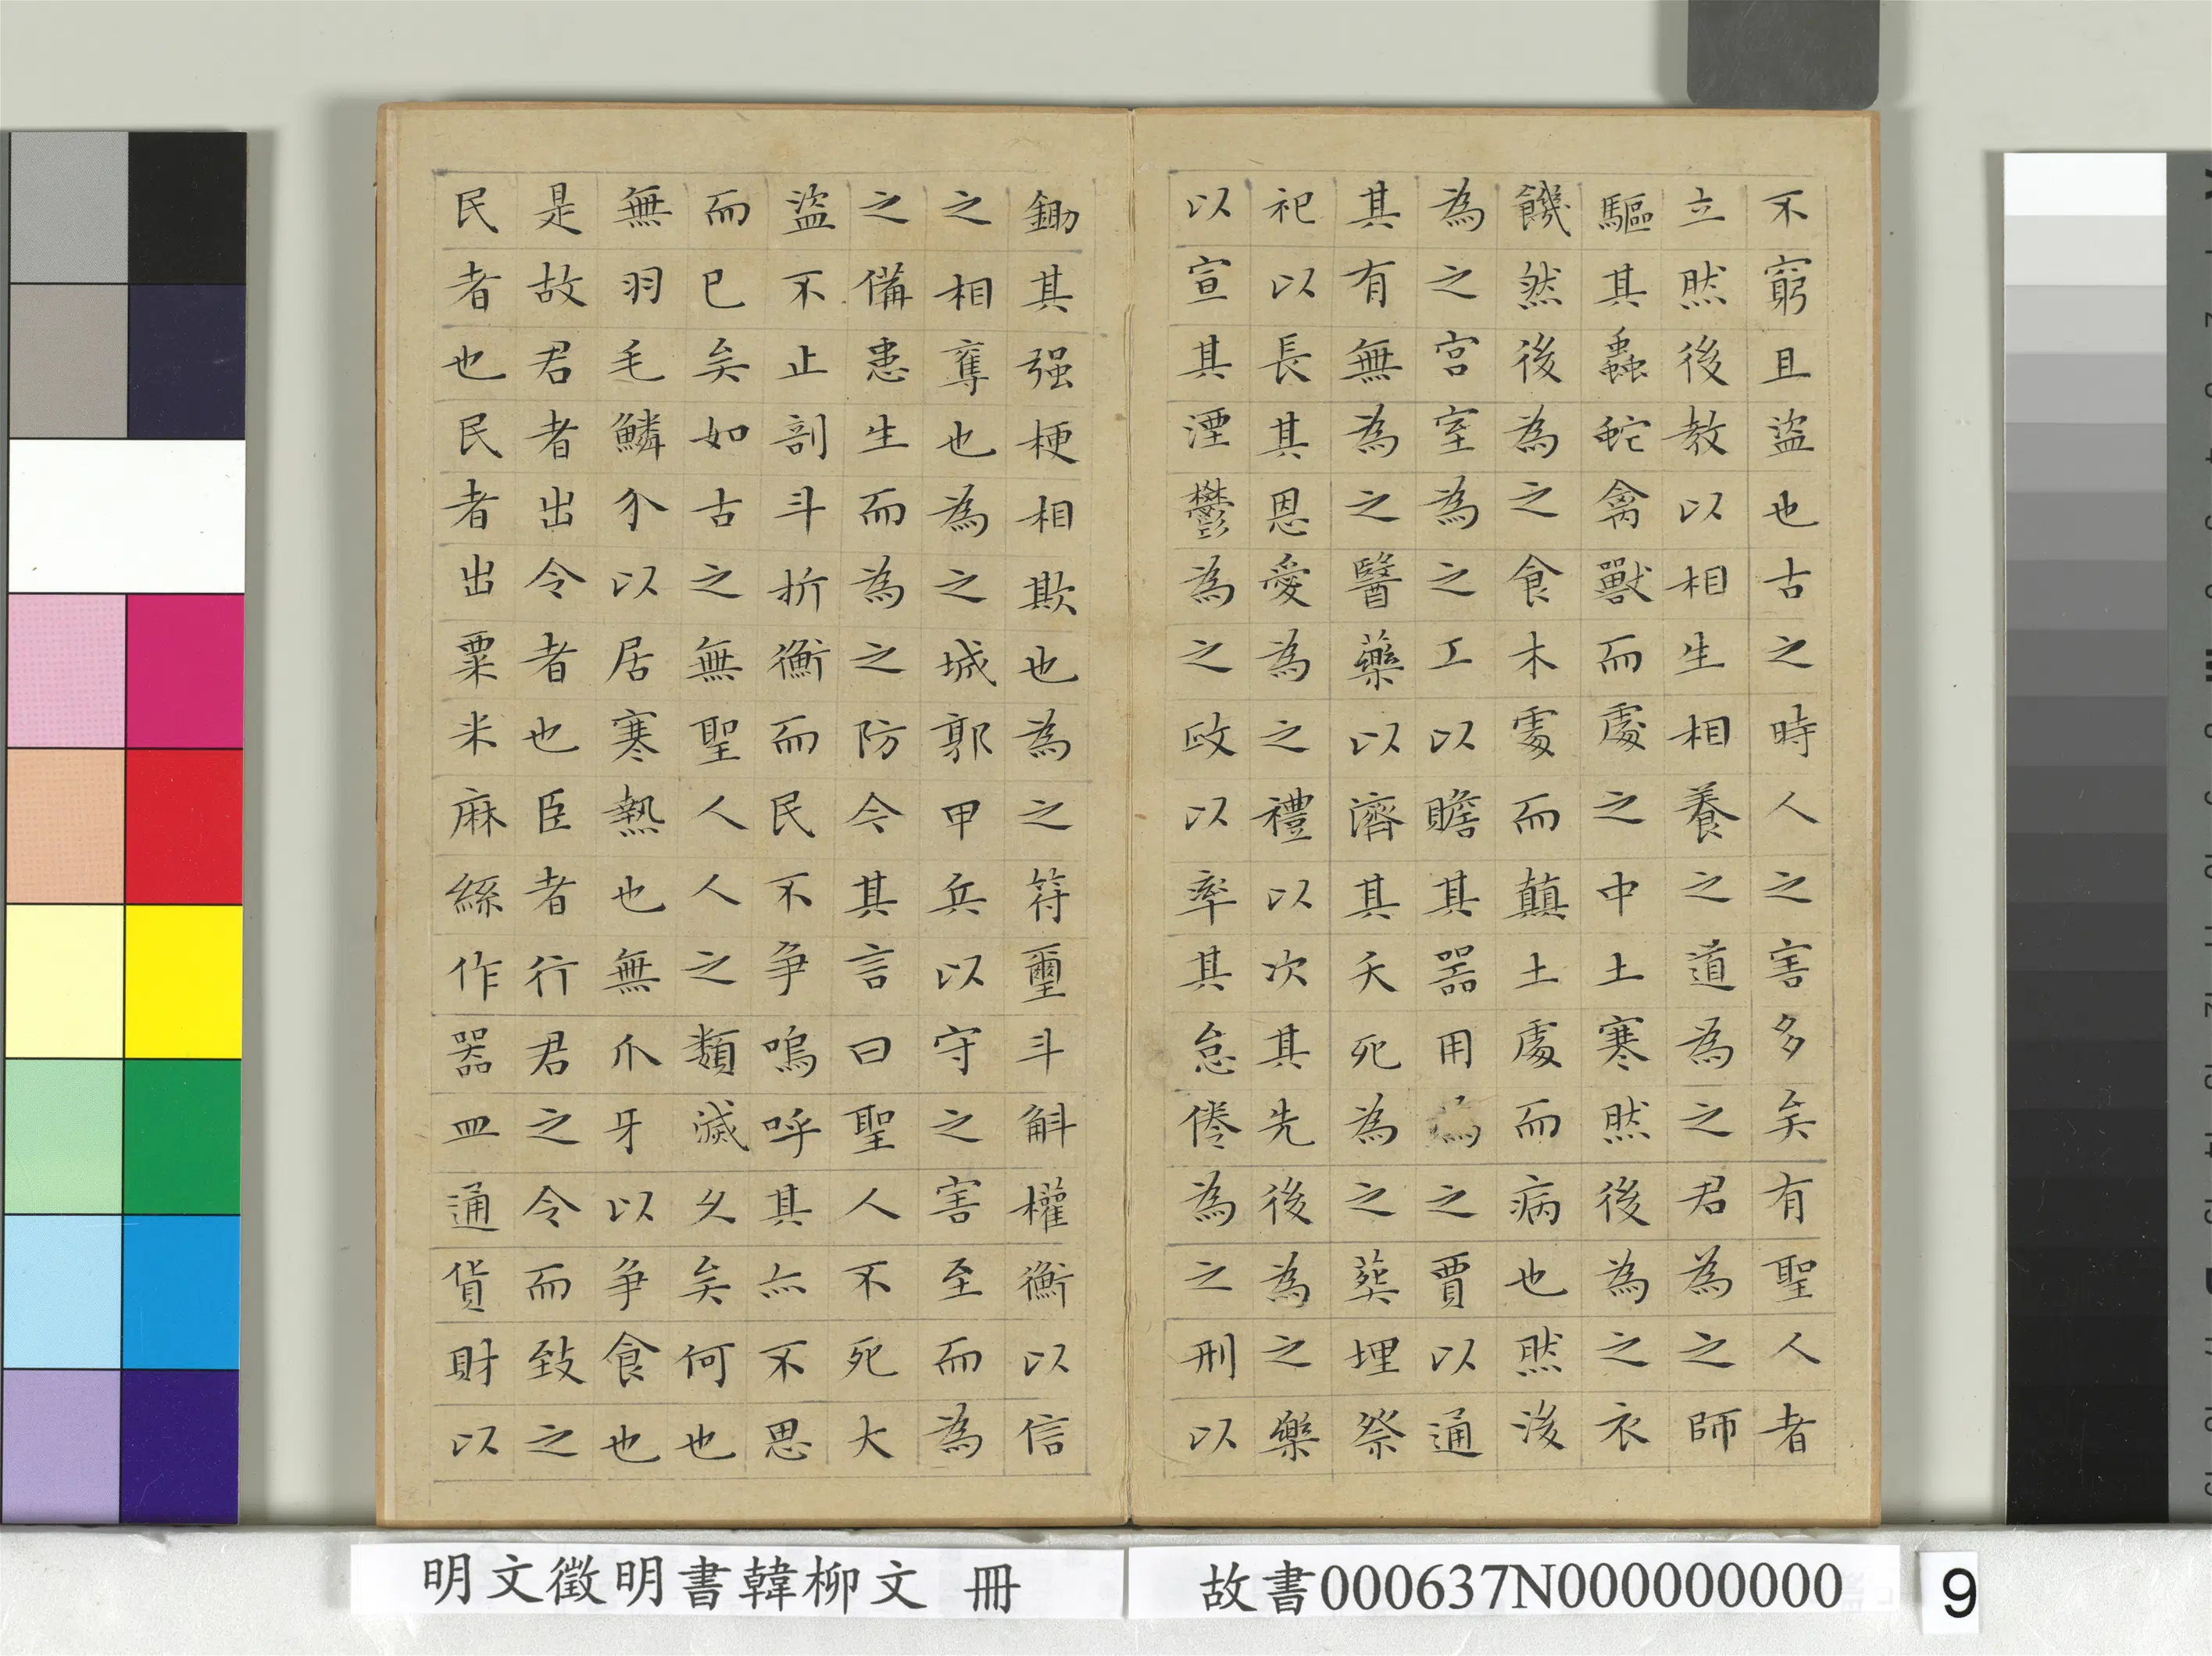 不窮且盜也古之時人之害多矣有聖人者
立然後教以相生相養之道為之君為之師
驅其蟲蛇禽獸而處之中土寒然後為之衣
饑然後為之食木處而顛土處而病也然後
為之宮室為之工以贍其器用為之賈以通
其有無為之醫藥以濟其夭死為之葬埋祭
祀以長其恩愛為之禮以次其先後為之樂
以宣其湮鬱為之政以率其怠倦為之刑以
鋤其强梗相欺也為之符璽斗斛權衡以信
之相奪也為之城郭甲兵以守之害至而為
之備患生而為之防今其言曰聖人不死大
盜不止剖斗折衡而民不爭嗚呼其亦不思
而已矣如古之無聖人人之類滅久矣何也
無羽毛鱗介以居寒熱也無爪牙以爭食也
是故君者出令者也臣者行君之令而致之
民者也民者出粟米麻絲作器皿通貨財以
明文徵明書韓柳文 冊
故書000637N000000000
9